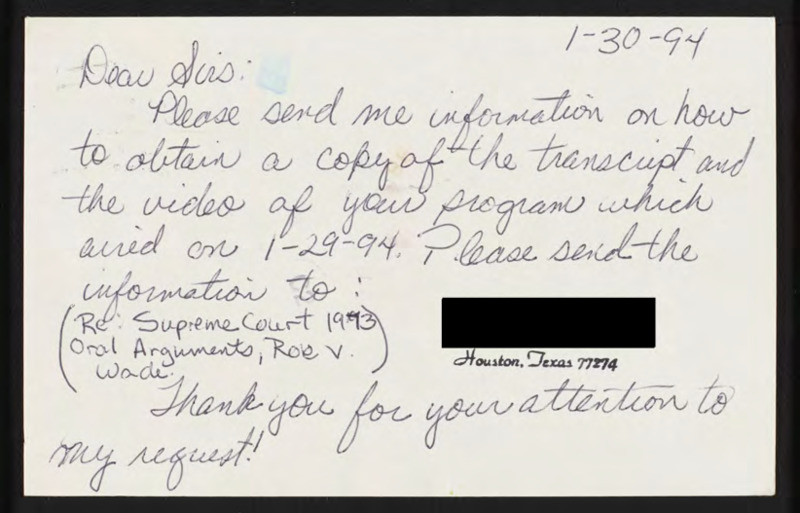 1-30-94
Dear Sirs:
Please send me information on how
to obtain a copy of the transcript and
the video of your program which
aired on 1-29-94. Please send the
information to:
(Re: Supreme Court 1973
Oral Arguments, Roe v.
Wade.)
Houston, Texas 77274
Thank you for your attention to
my request!